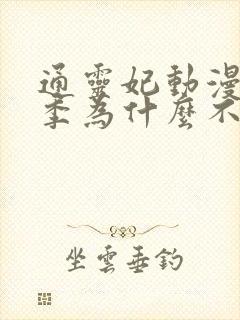 通靈妃動漫
季為什麼不
坐雲垂釣